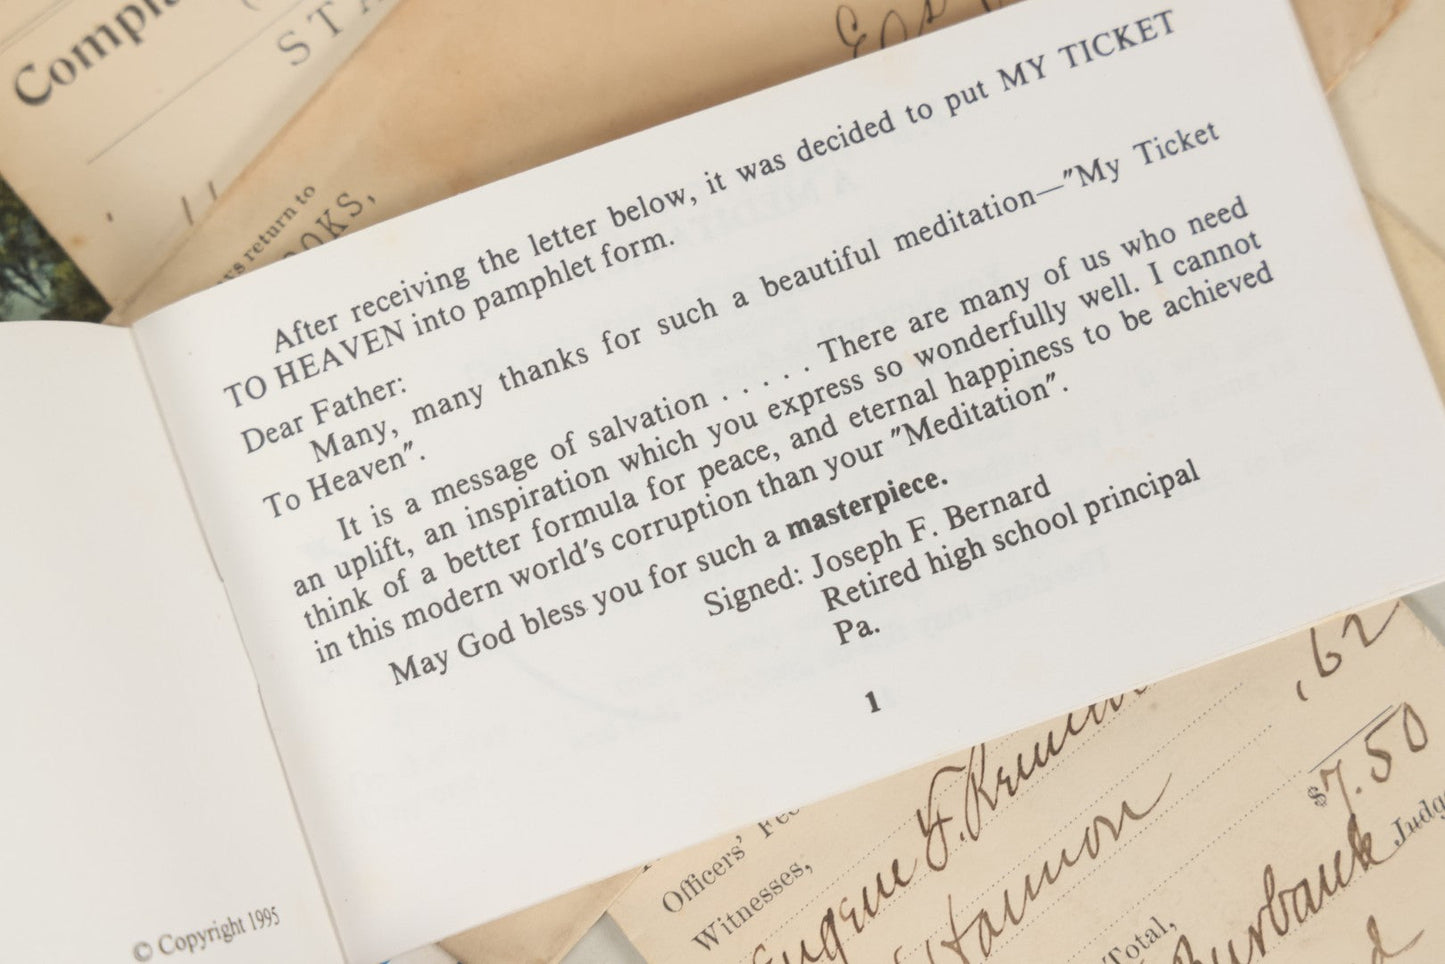 STA
return to
OOKS,
After receiving the letter below, it was decided to put MY TICKET
TO HEAVEN into pamphlet form.
Dear Father:
Many, many thanks for such a beautiful meditation—"My Ticket
To Heaven".
It is a message of salvation . . . . . There are many of us who need
an uplift, an inspiration which you express so wonderfully well. I cannot
think of a better formula for peace, and eternal happiness to be achieved
in this modern world's corruption than your "Meditation".
May God bless you for such a masterpiece.
Signed: Joseph F. Bernard
Retired high school principal
Pa.
1
© Copyright 1995
,62
$7.50
Officers' Fee
Witnesses,
Eugene F.
Total,
Burbank Judg